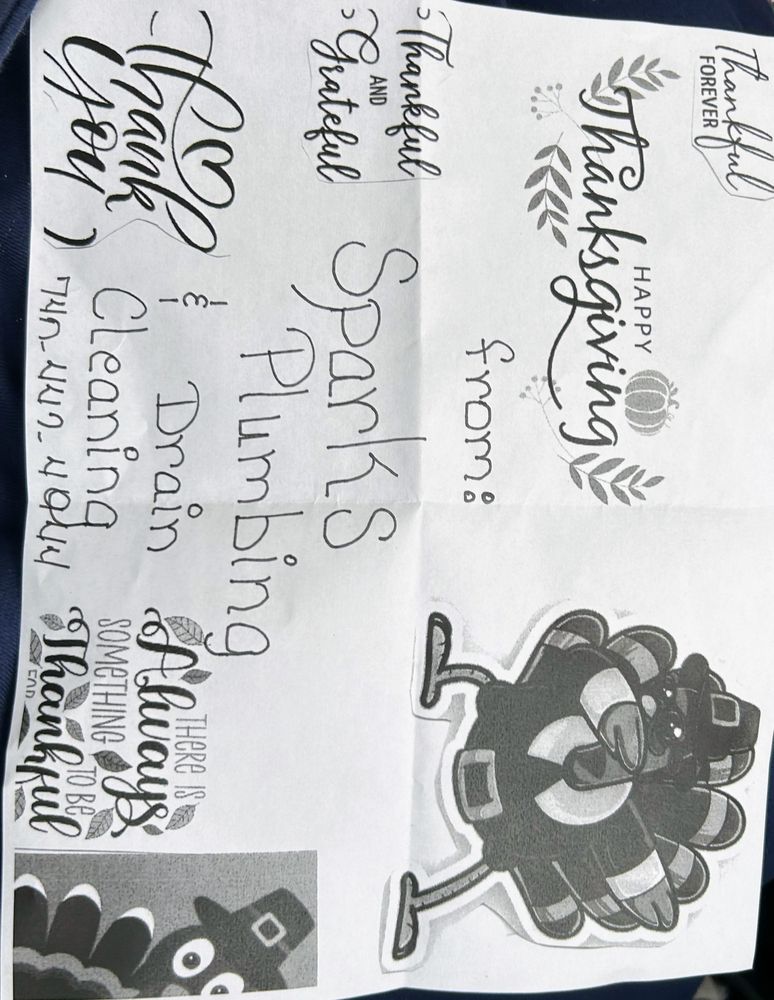 Thankful
FOREVER
HAPPY
Thanksgiving
from:
Thankful
AND
Grateful
Sparks
Plumbing
& Drain
Cleaning
Thank
you
THERE IS
Always
SOMETHING
TO BE
Thankful
FOR